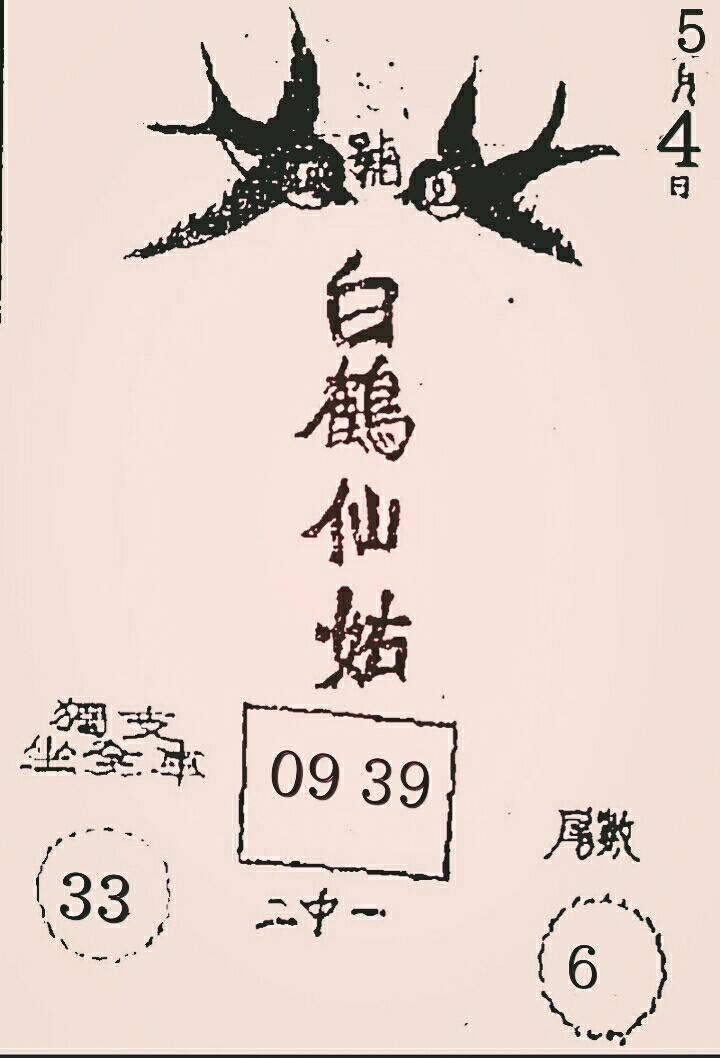 5
月
4
日
號
白
鶴
仙
姑
獨支
坐全車
09 39
二中一
33
尾數
6